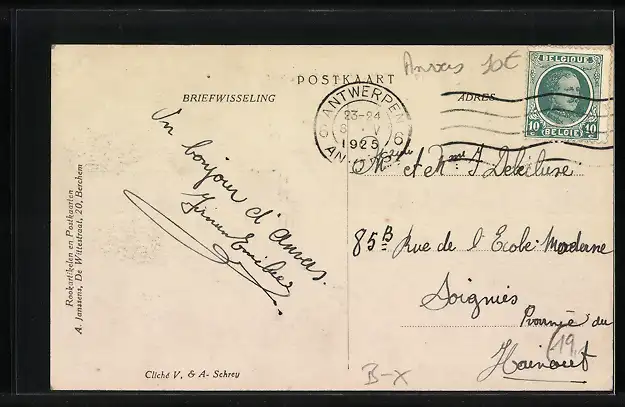 Anvers 10€
POSTKAART
BRIEFWISSELING
ADRES
BELGIQUE
10 BELGIË 10
ANTWERPEN 6
23-24
V
1925
Un bonjour d'Anvers.
Mr et Mme J Delcluse
85B Rue de l'Ecole Moderne
Soignies
Province du
Hainaut
19
B-X
Rookartikelen en Postkaarten
A. Janssens, De Wittestraat, 20, Berchem
Cliché V. & A- Schrey